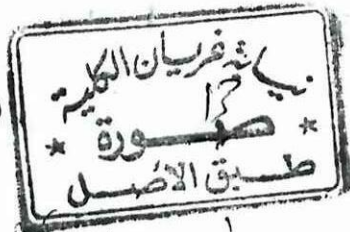 نيابة غريان الكلية
* صورة *
طبق الاصل